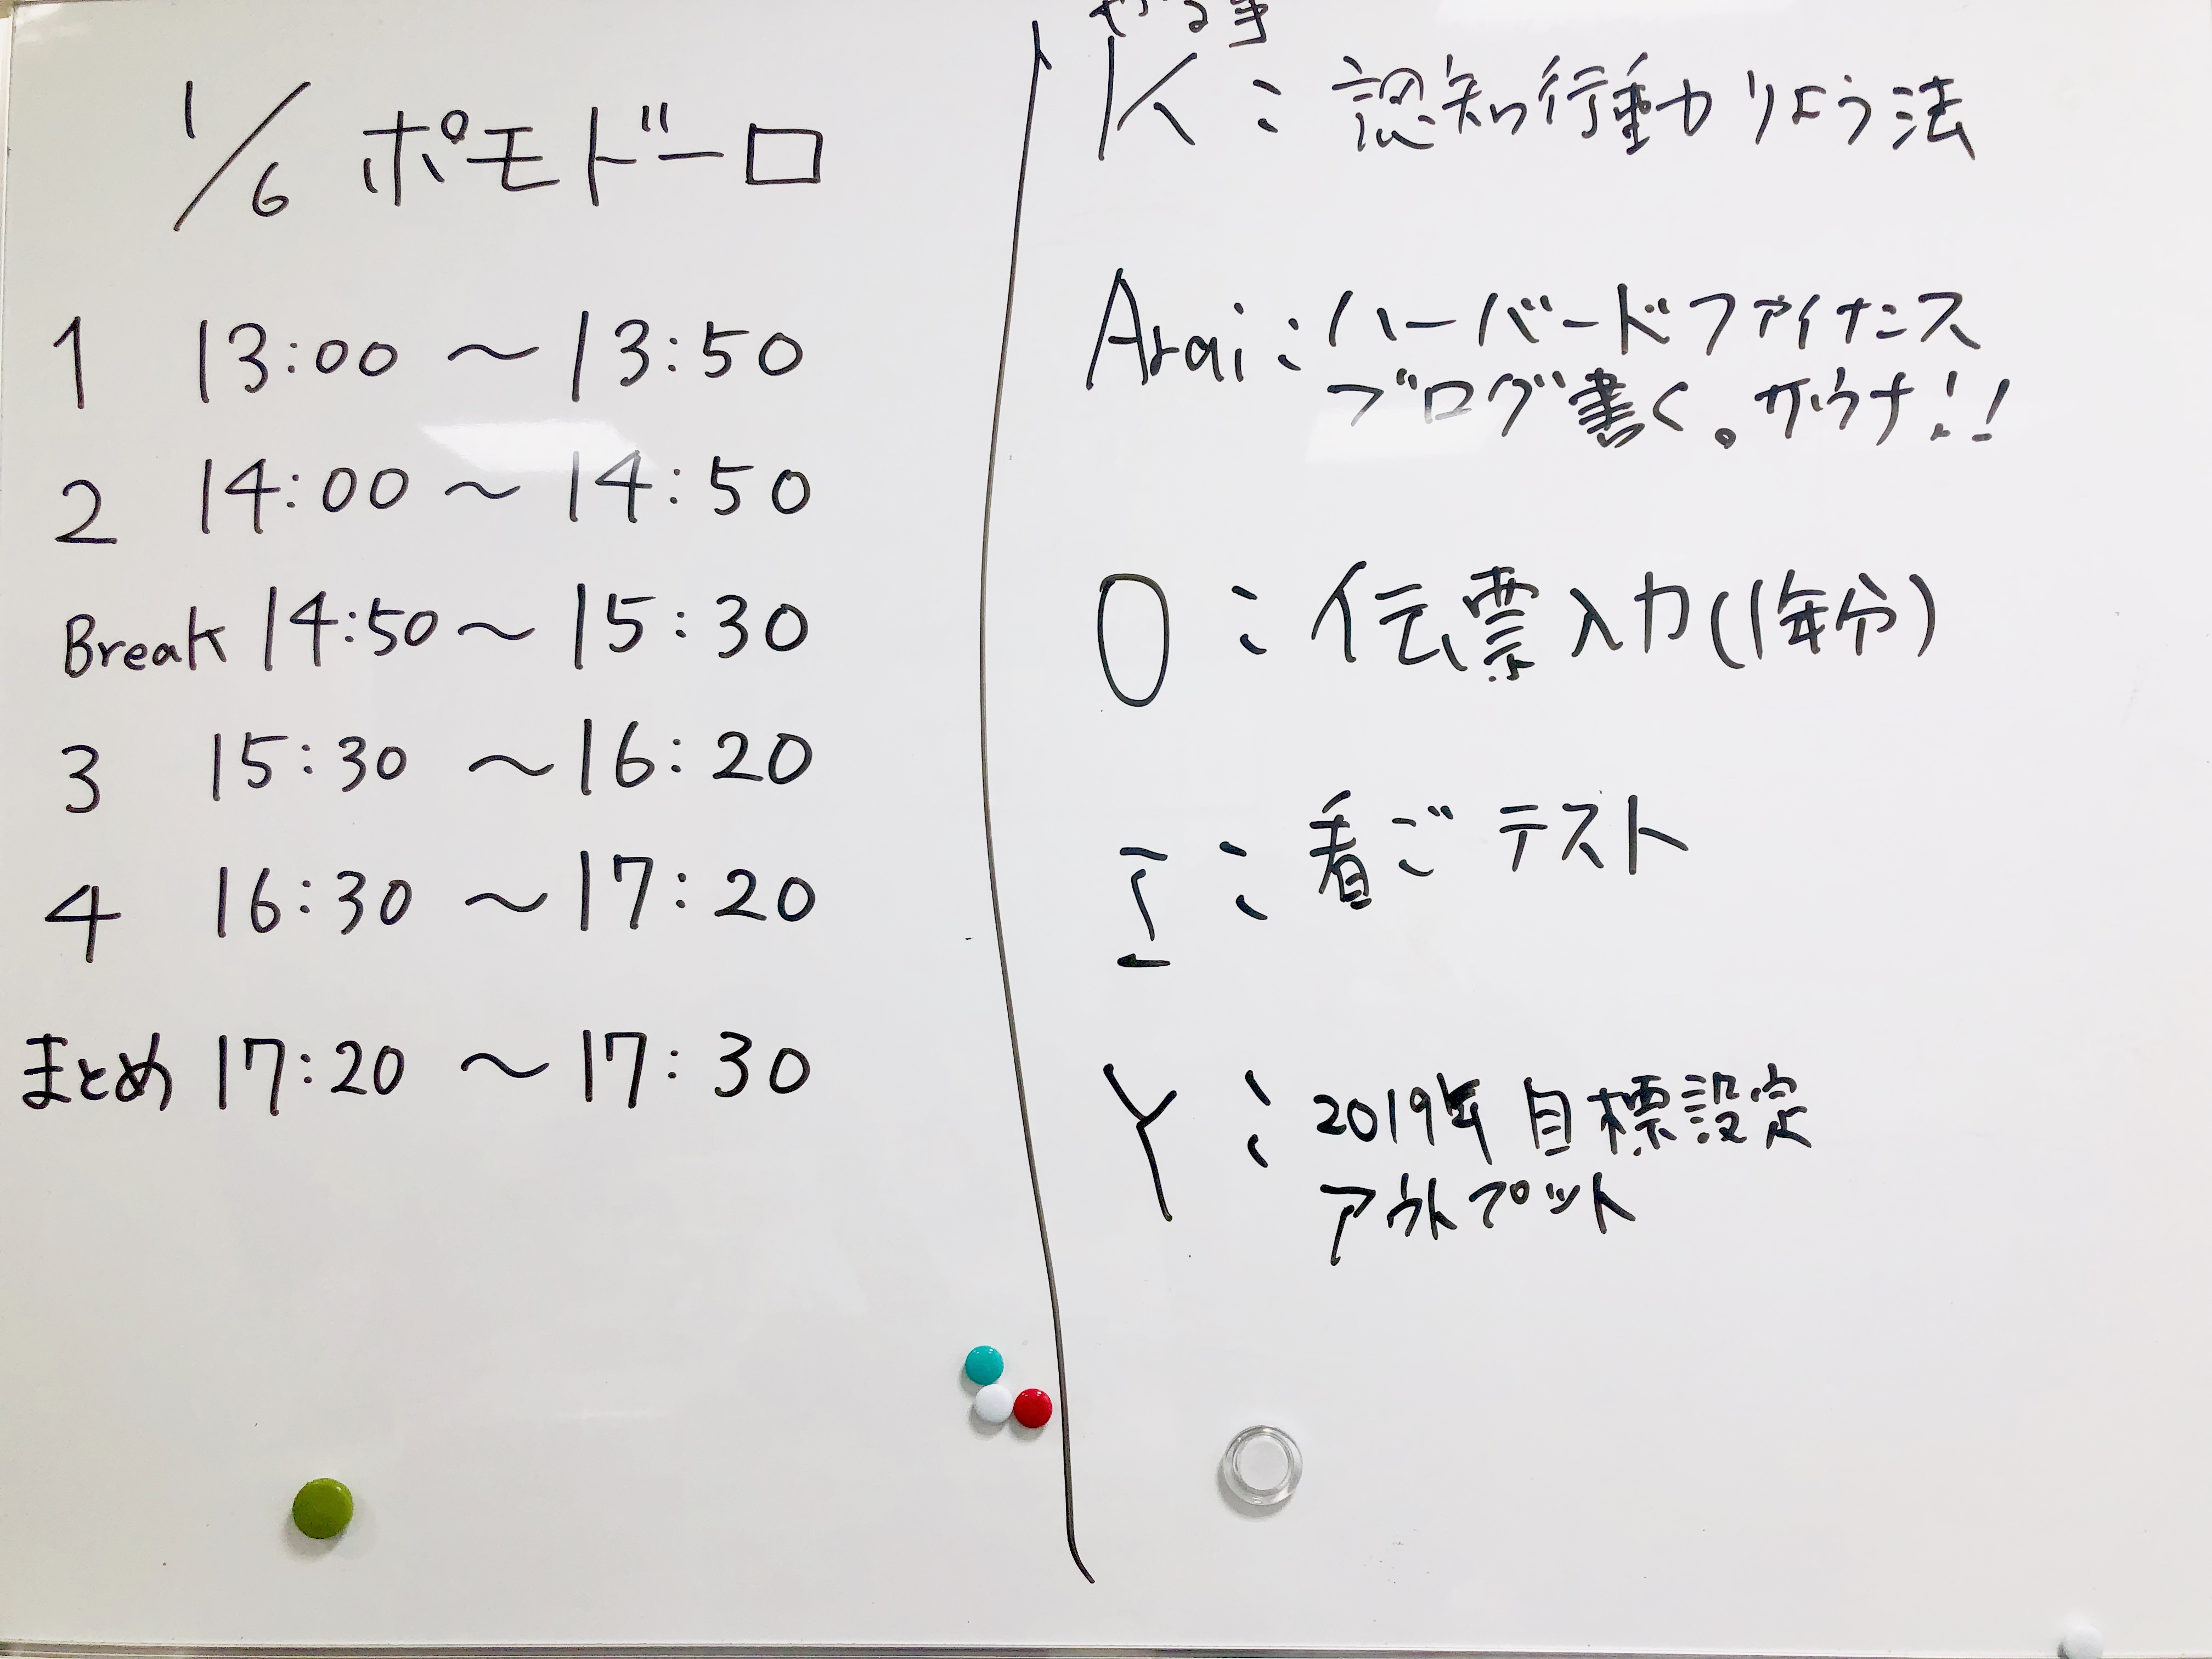 1/6 ポモドーロ
1 13:00 〜 13:50
2 14:00 〜 14:50
Break 14:50 〜 15:30
3 15:30 〜 16:20
4 16:30 〜 17:20
まとめ 17:20 〜 17:30
やる事
K: 認知行動りょう法
Arai: ハーバードファイナンス
ブログ書く。サウナ!!
O: 伝票入力(1年分)
I: 看ごテスト
Y: 2019年目標設定
アウトプット